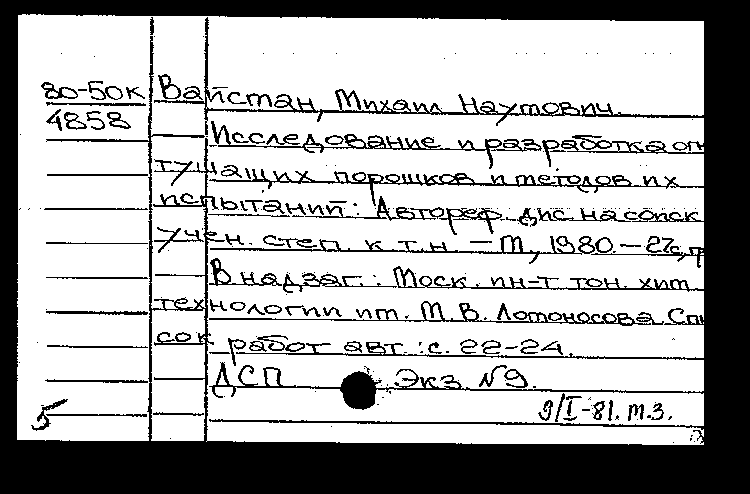 80-50к Вайстан, Михаил Наумович.
4858 Исследование и разработка ог
тушащих порошков и методов их
испытаний: Автореф. дис. на соиск
учен. степ. к.т.н. – М., 1980. – 27с,
В надзаг.: Моск. ин-т тон. хим.
технологии им. М.В. Ломоносова. Спи
сок работ авт.: с. 22-24.
ДСП Экз №9.
5 9/I-81. т.3.